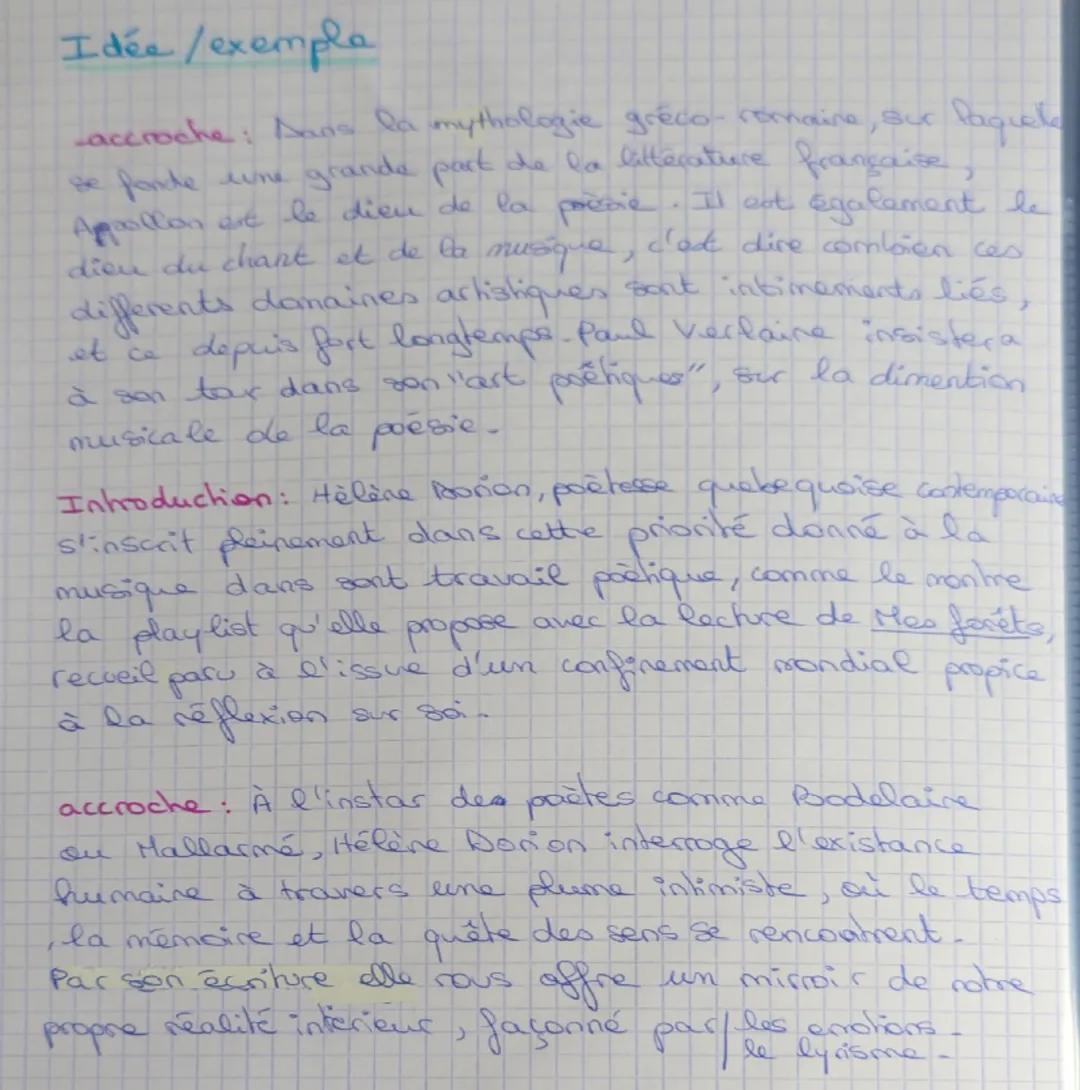 Idée / exemple
-accroche : Dans la mythologie gréco-romaine, sur laquelle
se fonde une grande part de la littérature française,
Appollon est le dieu de la poèsie. Il est également le
dieu du chant et de la musique, c'est dire combien ces
differents domaines artistiques sont intimements liés,
et ce depuis fort longtemps. Paul Verlaine insistera
à son tour dans son "art poétiques", sur la dimention
musicale de la poésie.
Introduction : Hélène Dorion, poètesse quebequoise contemporaine
s'inscrit pleinement dans cette priorité donné à la
musique dans sont travail poètique, comme le montre
la playlist qu'elle propose avec la lecture de Mes forêts,
recueil paru à l'issue d'un confinement mondial propice
à la réflexion sur soi.
accroche : À l'instar des poètes comme Boodelaire
ou Mallarmé, Hélène Dorion interroge l'existance
humaine à travers une plume intimiste, où le temps
, la mémoire et la quête des sens se rencontrent.
Par son écriture elle nous offre un miroir de notre
propre réalité intérieur, façonné par / les emotions.
le lyrisme.